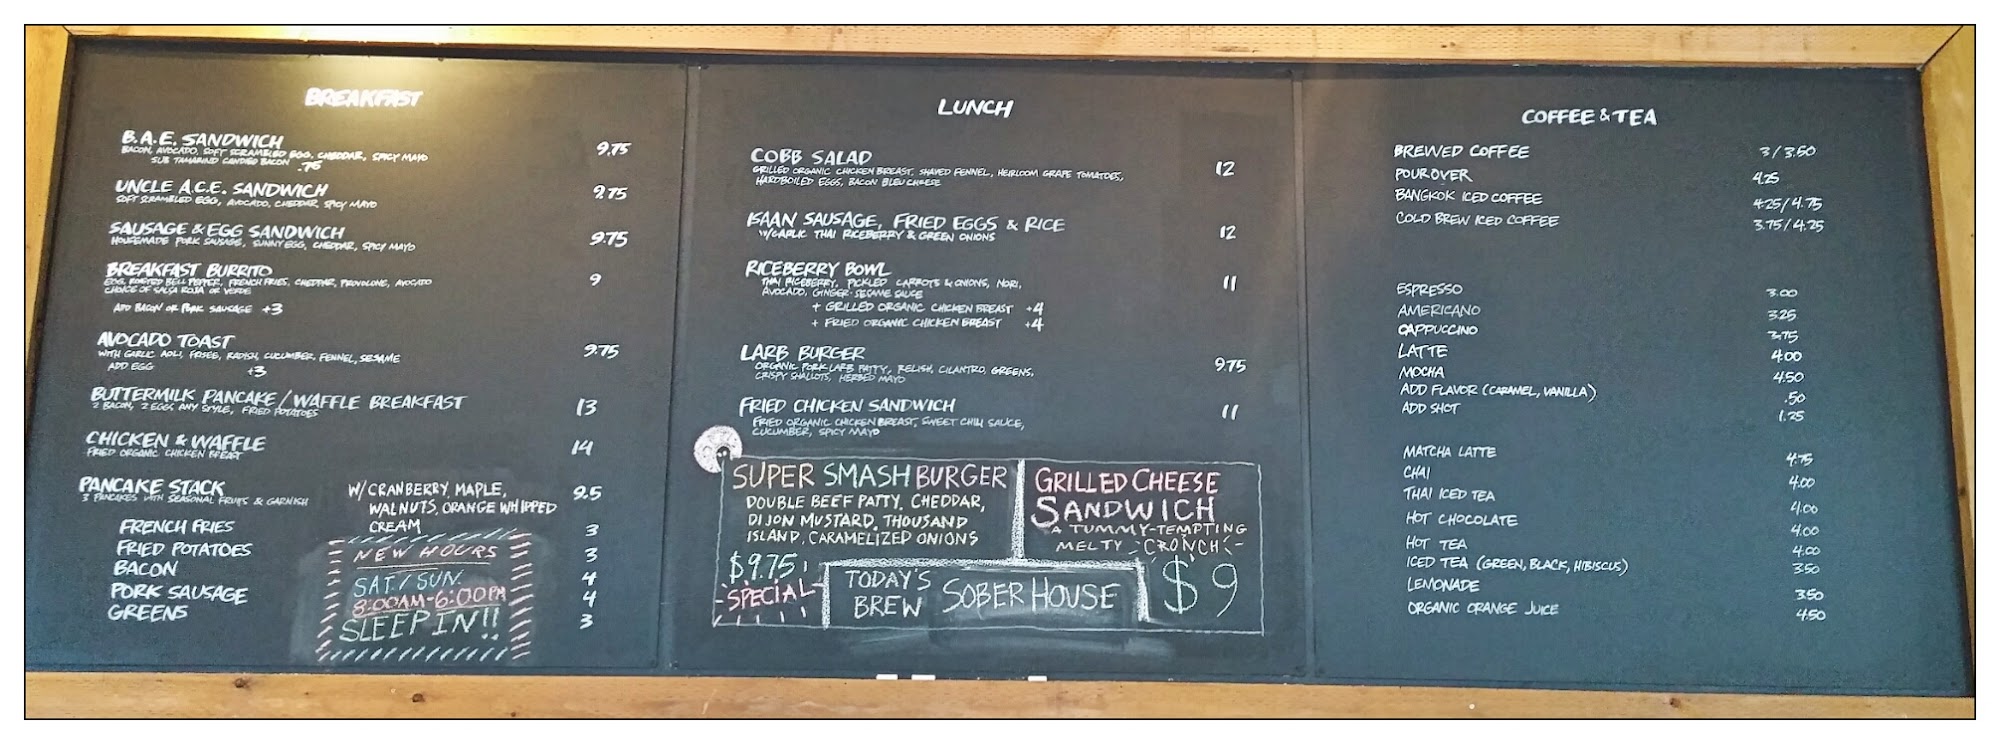 BREAKFAST
B.A.E. SANDWICH 9.75
BACON, AVOCADO, SOFT SCRAMBLED EGG, CHEDDAR, SPICY MAYO
SUB TAMARIND CANDIED BACON .75
UNCLE A.C.E. SANDWICH 9.75
SOFT SCRAMBLED EGG, AVOCADO, CHEDDAR, SPICY MAYO
SAUSAGE & EGG SANDWICH 9.75
HOUSEMADE PORK SAUSAGE, SUNNY EGG, CHEDDAR, SPICY MAYO
BREAKFAST BURRITO 9
EGG, ROASTED BELL PEPPER, FRENCH FRIES, CHEDDAR, PROVOLONE, AVOCADO
CHOICE OF SALSA ROJA OR VERDE
ADD BACON OR PORK SAUSAGE +3
AVOCADO TOAST 9.75
WITH GARLIC AOLI, FRISEE, RADISH, CUCUMBER, FENNEL, SESAME
ADD EGG +3
BUTTERMILK PANCAKE/WAFFLE BREAKFAST 13
2 BACON, 2 EGGS ANY STYLE, FRIED POTATOES
CHICKEN & WAFFLE 14
FRIED ORGANIC CHICKEN BREAST
PANCAKE STACK 9.5
3 PANCAKES WITH SEASONAL FRUITS & GARNISH
W/ CRANBERRY, MAPLE,
WALNUTS, ORANGE WHIPPED
CREAM
FRENCH FRIES 3
FRIED POTATOES 3
BACON 4
PORK SAUSAGE 4
GREENS 3
NEW HOURS
SAT./SUN.
8:00AM-6:00PM
SLEEP IN!!
LUNCH
COBB SALAD 12
GRILLED ORGANIC CHICKEN BREAST, SHAVED FENNEL, HEIRLOOM GRAPE TOMATOES,
HARDBOILED EGGS, BACON BLEU CHEESE
ISAAN SAUSAGE, FRIED EGGS & RICE 12
W/GARLIC THAI RICEBERRY & GREEN ONIONS
RICEBERRY BOWL 11
THAI RICEBERRY, PICKLED CARROTS & ONIONS, NORI,
AVOCADO, GINGER-SESAME SAUCE
+ GRILLED ORGANIC CHICKEN BREAST +4
+ FRIED ORGANIC CHICKEN BREAST +4
LARB BURGER 9.75
ORGANIC PORK LARB PATTY, RELISH, CILANTRO, GREENS,
CRISPY SHALLOTS, HERBED MAYO
FRIED CHICKEN SANDWICH 11
FRIED ORGANIC CHICKEN BREAST, SWEET CHILI SAUCE,
CUCUMBER, SPICY MAYO
SUPER SMASH BURGER
DOUBLE BEEF PATTY, CHEDDAR,
DIJON MUSTARD, THOUSAND
ISLAND, CARAMELIZED ONIONS
$9.75
SPECIAL
GRILLED CHEESE
SANDWICH
A TUMMY-TEMPTING
MELTY CRONCH
$9
TODAY'S
BREW SOBER HOUSE
COFFEE & TEA
BREWED COFFEE 3/3.50
POUROVER 4.25
BANGKOK ICED COFFEE 4.25/4.75
COLD BREW ICED COFFEE 3.75/4.25
ESPRESSO 3.00
AMERICANO 3.25
CAPPUCCINO 3.75
LATTE 4.00
MOCHA 4.50
ADD FLAVOR (CARAMEL, VANILLA) .50
ADD SHOT 1.25
MATCHA LATTE 4.75
CHAI 4.00
THAI ICED TEA 4.00
HOT CHOCOLATE 4.00
HOT TEA 4.00
ICED TEA (GREEN, BLACK, HIBISCUS) 3.50
LEMONADE 3.50
ORGANIC ORANGE JUICE 4.50